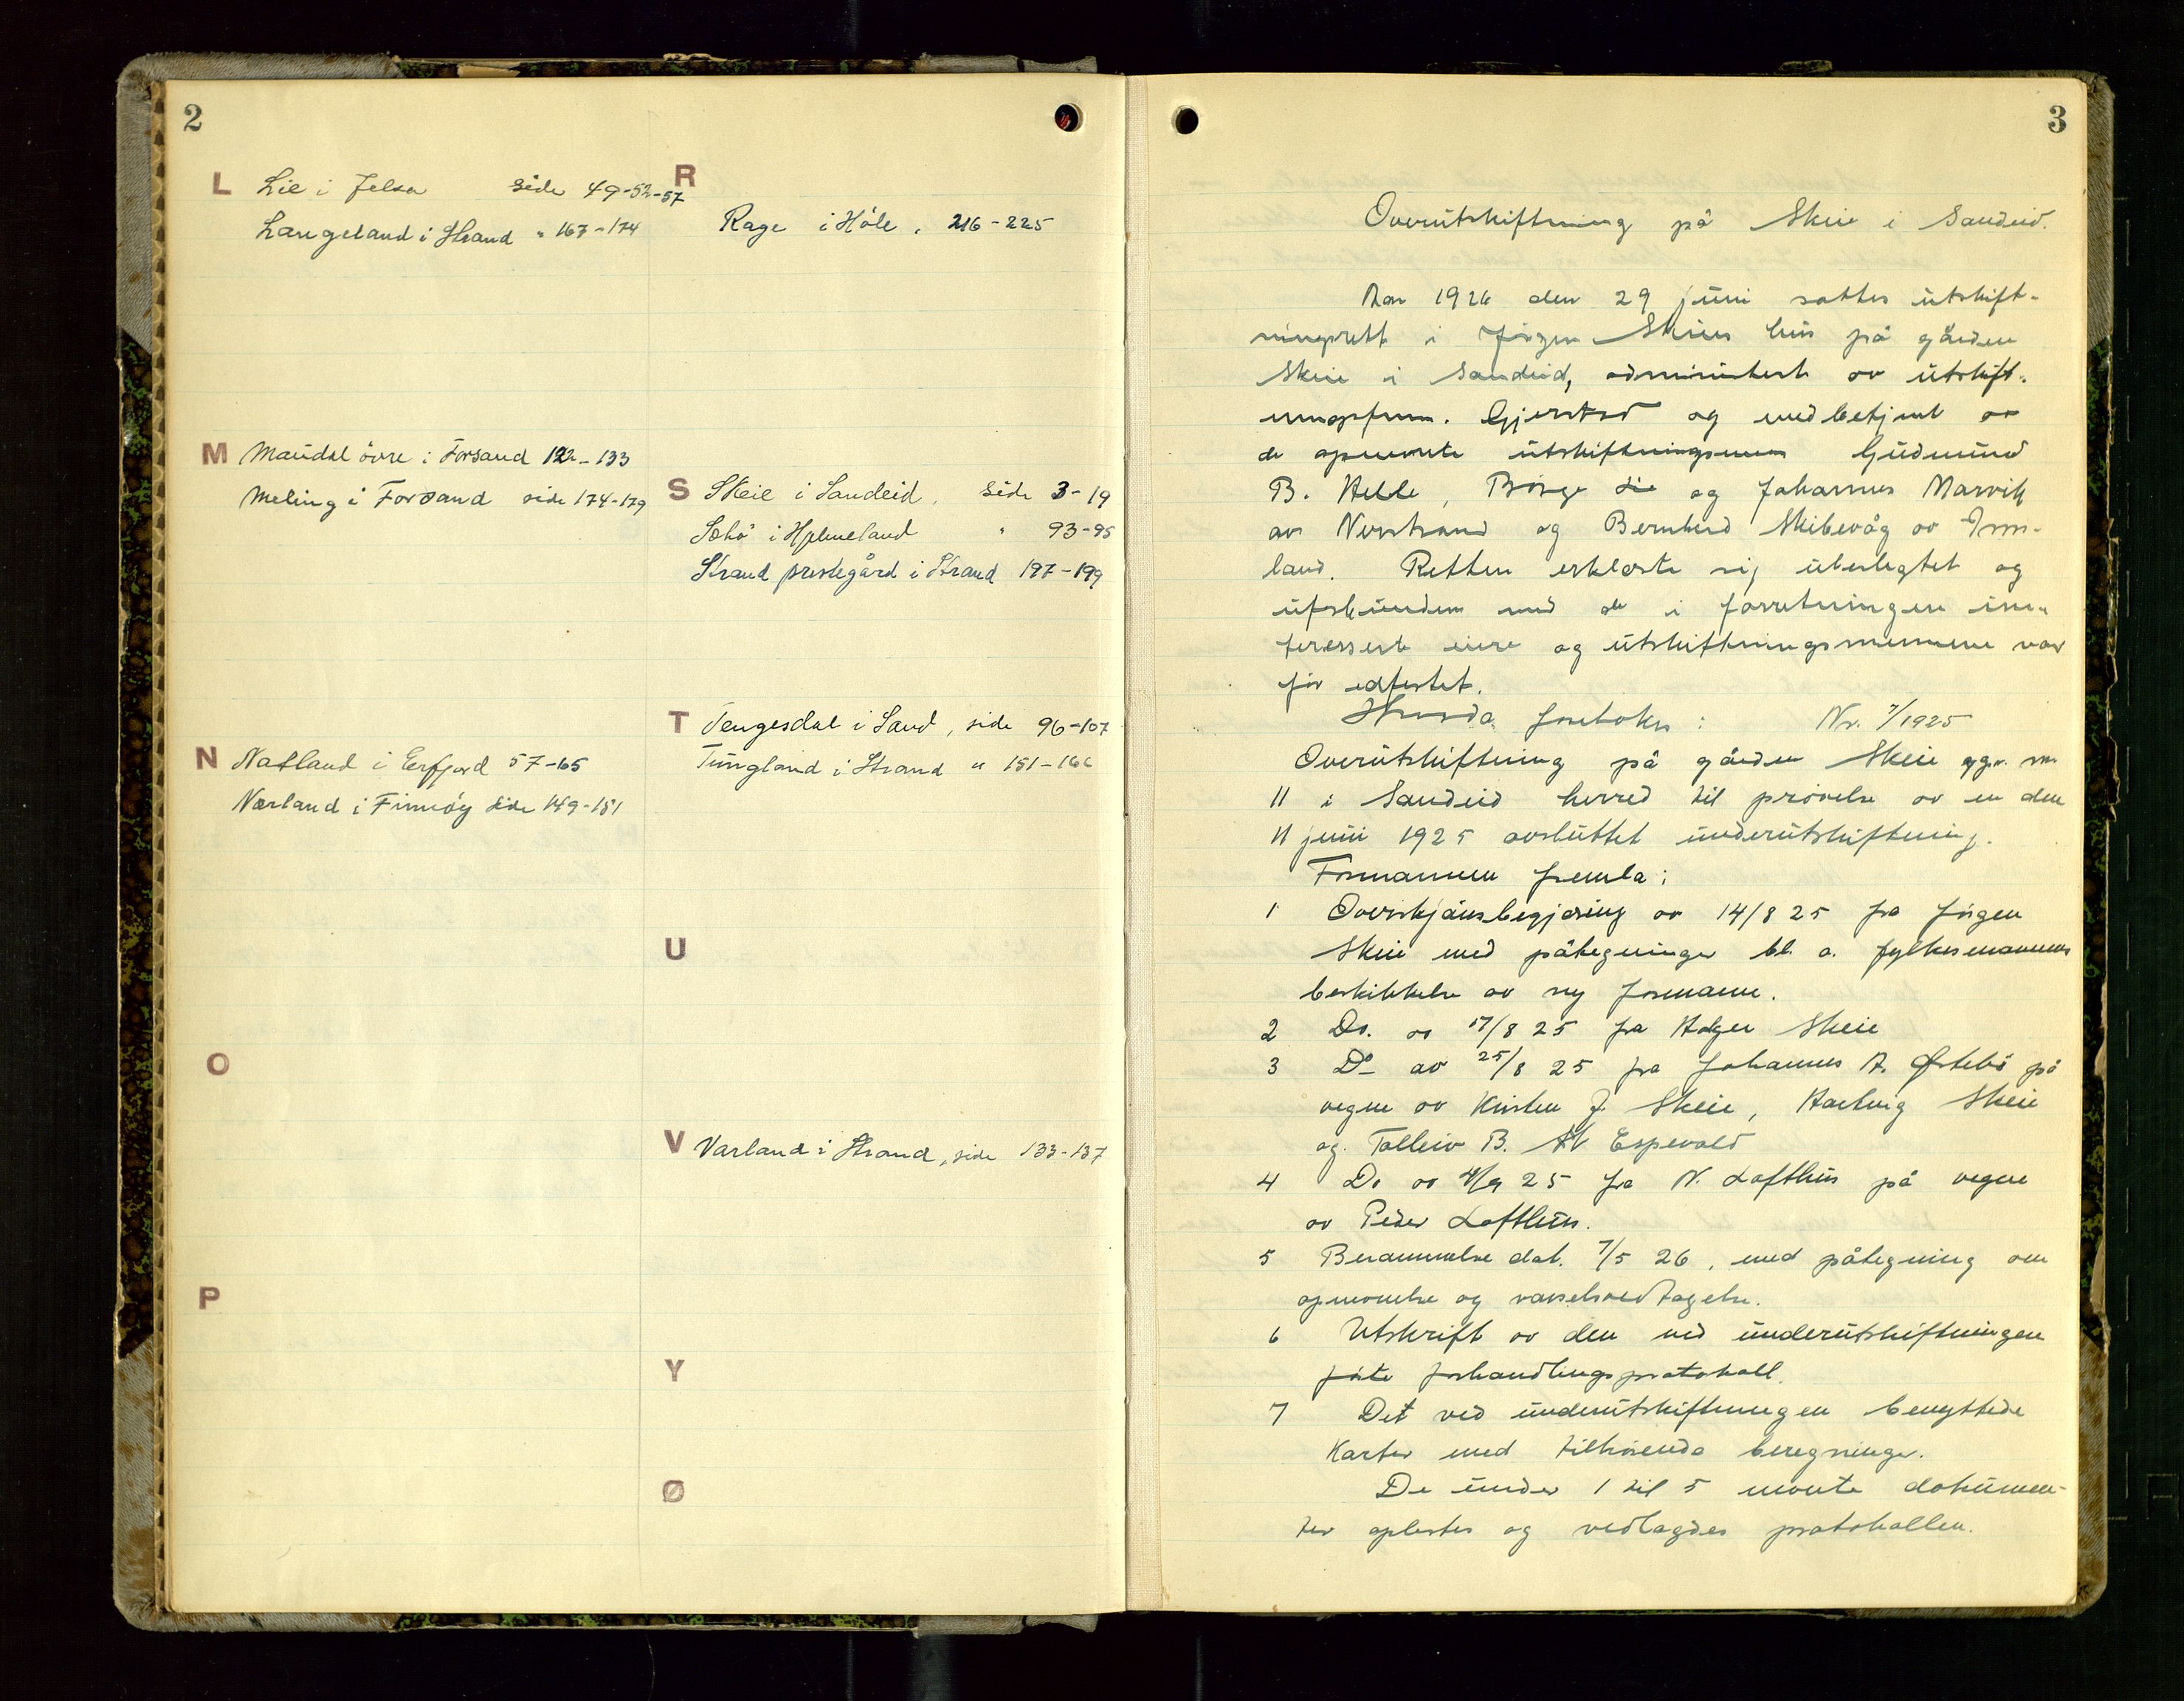 2
L Lie i Jelsa side 49-52-57
Langeland i Strand " 167-174
M Maudal övre i Forsand 122-133
Meling i Forsand side 174-179
N Natland i Erfjord 57-65
Nærland i Finnöy side 149-151
O
P
R
Rage i Höle " 216-225
S Skeie i Sandeid, side 3-19
i Hjelmeland " 93-95
Strand prestegård i Strand 197-199
T Tengesdal i Sand, side 96-107
Tungland i Strand " 151-166
U
V Varland i Strand, side 133-137
Y
Ø
3
Overutskiftning på Skeie i Sandeid.
År 1926 den 29 juni sattes utskift-
ningsrett i Jörgen Skeies hus på gården
Skeie i Sandeid, administrert av utskift-
ningsform. Gjerstad og medbetjent av
de opnevnte utskiftningsmenn Gudmund
B. Helle, Börge Lie og Johannes Marvik
av Nerstrand og Bernhard Skibevåg av Imm-
land. Retten erklærte sig ubeslegtet og
ubeskyldt med de i forretningen inn-
teresserte eiere og utskiftningsmennene var
för edfestet.
foretokes: Nr. 7/1925
Overutskiftning på gården Skeie g.nr.
11 i Sandeid herred til prövelse av en den
11 juni 1925 avsluttet underutskiftning.
Formannen fremla:
1 Overskjönsbegjæring av 14/8 25 fra Jörgen
Skeie med påtegninger bl. a. fylkesmannens
beskikkelse av ny formann.
2 Do. av 17/8 25 fra Holger Skeie
3 Do av 25/8 25 fra Johannes A. Østebö på
vegne av Kirsten J. Skeie, Hartvig Skeie
og Tolleiv B. Espevold
4 Do av 4/9 25 fra N. Lofthus på vegne
av Peder Lofthus.
5 Berammelse dat. 7/5 26, med påtegning om
opnevnelse og varselsvedtagelse.
6 Utskrift av den ved underutskiftningen
förte forhandlingsprotokoll.
7 Det ved underutskiftningen benyttede
karter med tilhörende beregninger.
De under 1 til 5 nevnte dokumen-
ter oplestes og vedlagdes protokollen.